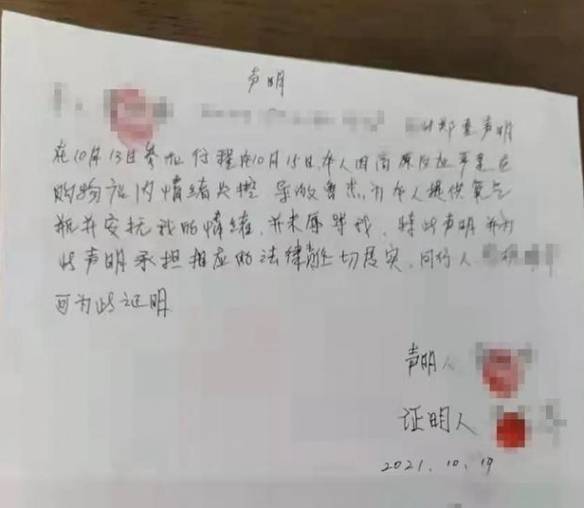 声明
郑重声明
在10月13日参加行程在10月15日,本人因高原反应严重在
购物店内情绪失控 导游鲁杰,为本人提供氧气
瓶并安抚我的情绪,并未辱骂我,特此声明并为
此声明承担相应的法律责任切属实,同行人
可为此证明
声明人
证明人
2021.10.19